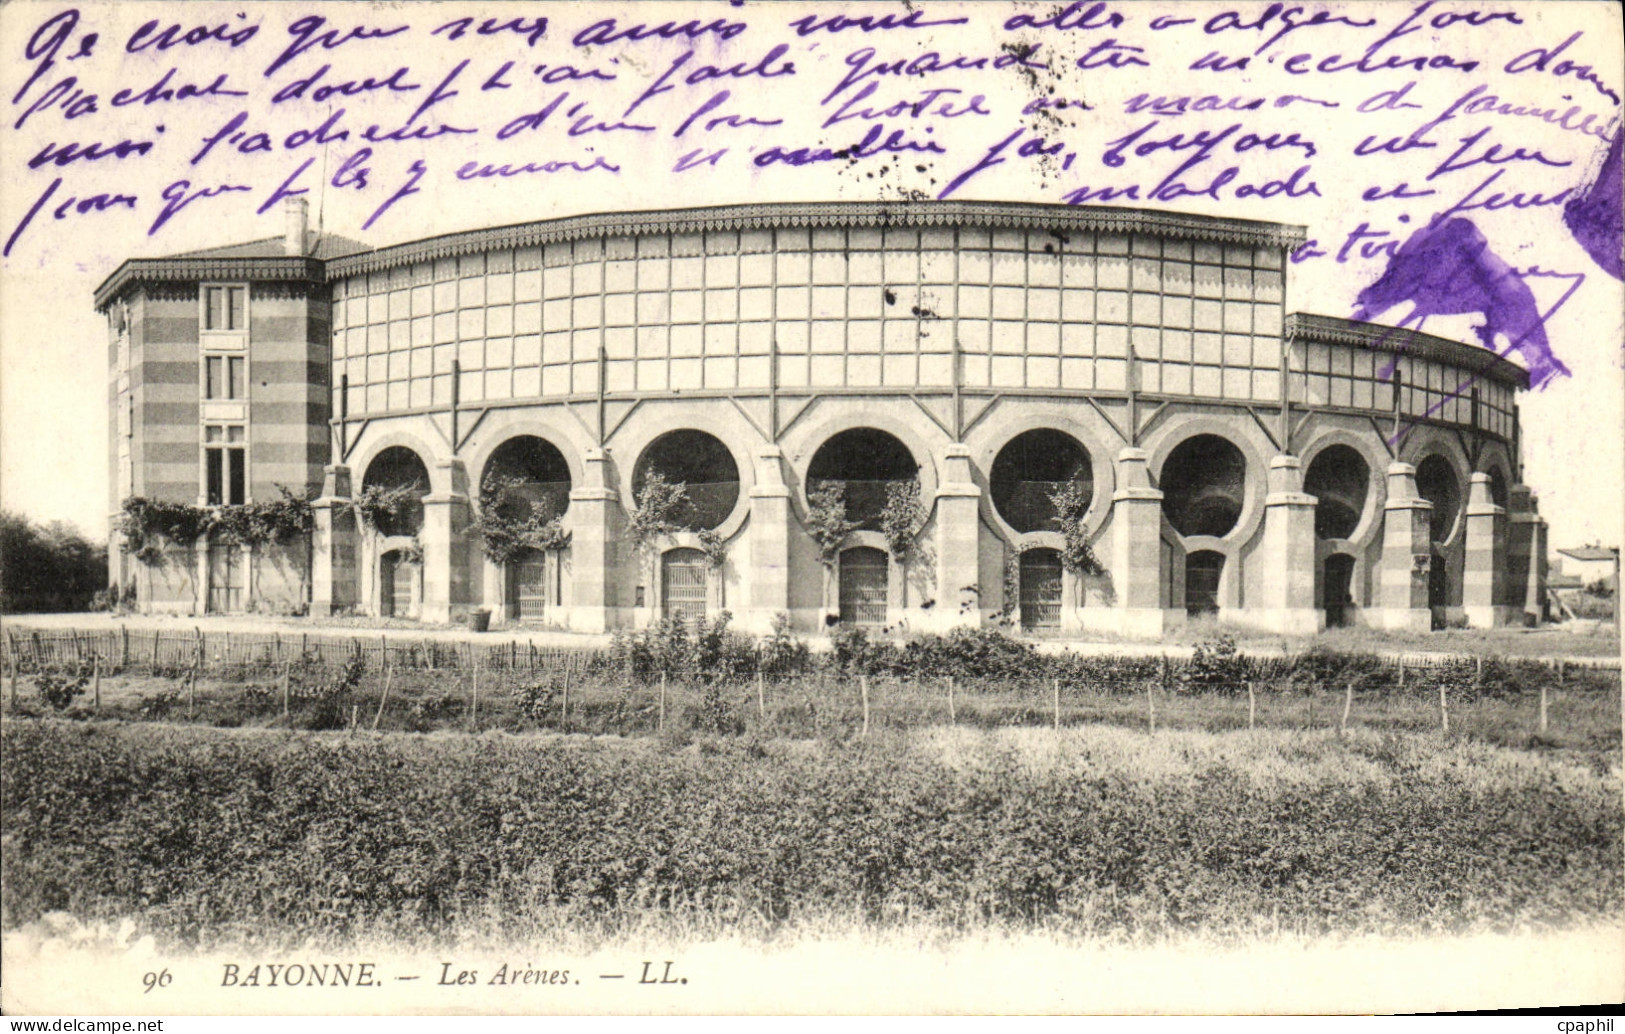 Je crois que mes amis sont allé a alger pour
l'achat dont je t'ai parlé quand tu m'ecriras donne
moi l'adresse d'un bon hotel ou maison de famille
pour que je les y envoie n'oublie pas, toujours un peu
malade et
a toi
96 BAYONNE. — Les Arènes. — LL.
cpaphil.com
cpaphil